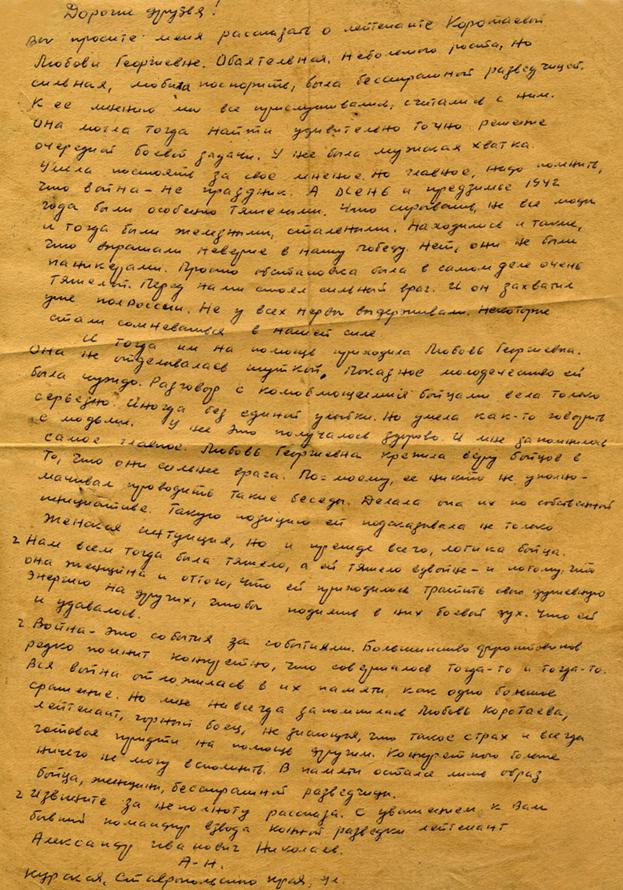 Дорогие друзья!
Вы просите меня рассказать о лейтенанте Коротаевой
Любови Георгиевне. Обаятельная. Небольшого роста, но
сильная, любила поспорить, была бесстрашной разведчицей.
К ее мнению мы все прислушивались, считались с ним.
Она могла тогда найти удивительно точно решение
очередной боевой задачи. У нее была мужская хватка.
Умела постоять за свое мнение. Но главное, надо помнить,
что война – не праздник. А осень и предзимье 1942
года были особенно тяжелыми. Что скрывать, не все люди
и тогда были железными, стальными. Находились и такие,
что выражали неверие в нашу победу. Нет, они не были
паникерами. Просто обстановка была в самом деле очень
тяжелой. Перед нами стоял сильный враг. И он захватил
уже полРоссии. Не у всех нервы выдерживали. Некоторые
стали сомневаться в нашей силе
И тогда им на помощь приходила Любовь Георгиевна.
Она не отделывалась шуткой. Показное молодечество ей
было чуждо. Разговор с колеблющимися бойцами вела только
серьезно. Иногда без единой улыбки. Но умела как-то говорить
с людьми. У нее это получалось здорово. И мне запомнилось
самое главное. Любовь Георгиевна крепила веру бойцов в
то, что они сильнее врага. По-моему, ее никто не уполно-
мачивал проводить такие беседы. Делала она их по собственной
инициативе. Такую позицию ей подсказывала не только
женская интуиция, но и прежде всего, логика бойца.
Нам всем тогда было тяжело, а ей тяжело вдвойне – и потому, что
она женщина и оттого, что ей приходилось тратить свою душевную
энергию на других, чтобы поднимать в них боевой дух. Что ей
и удавалось.
Война – это события за событиями. Большинство фронтовиков
редко помнит конкретно, что совершалось тогда-то и тогда-то.
Вся война отложилась в их памяти, как одно большое
сражение. Но мне навсегда запомнилась Любовь Коротаева,
лейтенант, горный боец, не знающая, что такое страх и всегда
готовая придти на помощь другим. Конкретного больше
ничего не могу вспомнить. В памяти остался лишь образ
бойца, женщины, бесстрашной разведчицы.
Извините за неполноту рассказа. С уважением к Вам
бывший командир взвода конной разведки лейтенант
Александр Иванович Николаев.
А-Н.
Курская, Ставропольского края, ул.